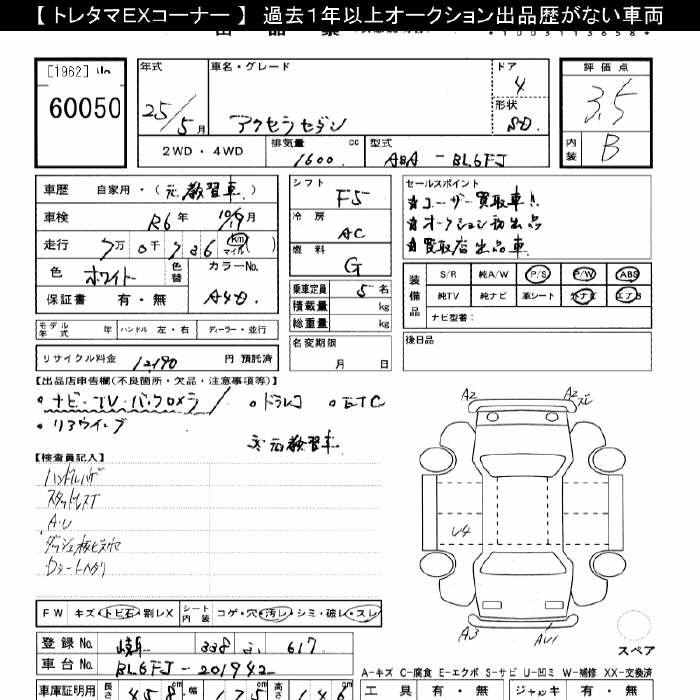 【 トレタマEXコーナー 】 過去1年以上オークション出品歴がない車両
*1003113658*
[1962]
60050
年式
25/5月
車名・グレード
アクセラセダン
ドア
4
形状
SD.
評価点
3.5
内装
B
2WD・4WD
排気量
1600
cc
型式
ABA-BL6FJ
車歴 自家用・(元教習車)
車検 R6年 10/19月
走行 7万0千736 (km マイル)
色 ホワイト
色替
カラーNo.
A4D.
保証書 有・無
シフト
F5
冷房
AC
燃料
G
乗車定員 5名
積載量 kg
総重量 kg
名変期限
月 日
セールスポイント
★ユーザー買取車!
★オークション初出品
★買取店出品車
装備品
S/R 純A/W P/S P/W ABS
純TV 純ナビ 革シート 外ナビ エアB
ナビ型番:
後日品
モデル年式 年 ハンドル 左・右 ディーラー・並行
リサイクル料金 12,190 円 預託済
【出品店申告欄(不良箇所・欠品・注意事項等)】
・ナビ・TV・バックカメラ ・ドラレコ ・ETC
・リアウイング
元教習車
【検査員記入】
ハンドルハゲ
A・U
FW キズ・トビ石・割レX シート内装 コゲ・穴・汚レ・シミ・破レ・スレ
登録No. 岐阜 338 617
車台No. BL6FJ-201942
車庫証明用 長さ 458cm 幅 175cm 高さ 146cm
A2
A2
ズレ
U4
A3
AU1
スペア
A-キズ C-腐食 E-エクボ S-サビ U-凹ミ W-補修 XX-交換済
工具 有・無 ジャッキ 有・無